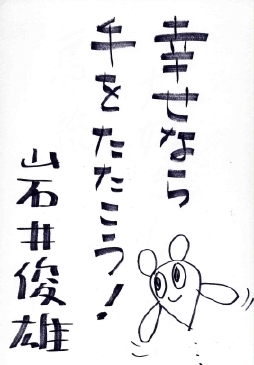 幸せなら
手をたたこう!
岩井俊雄